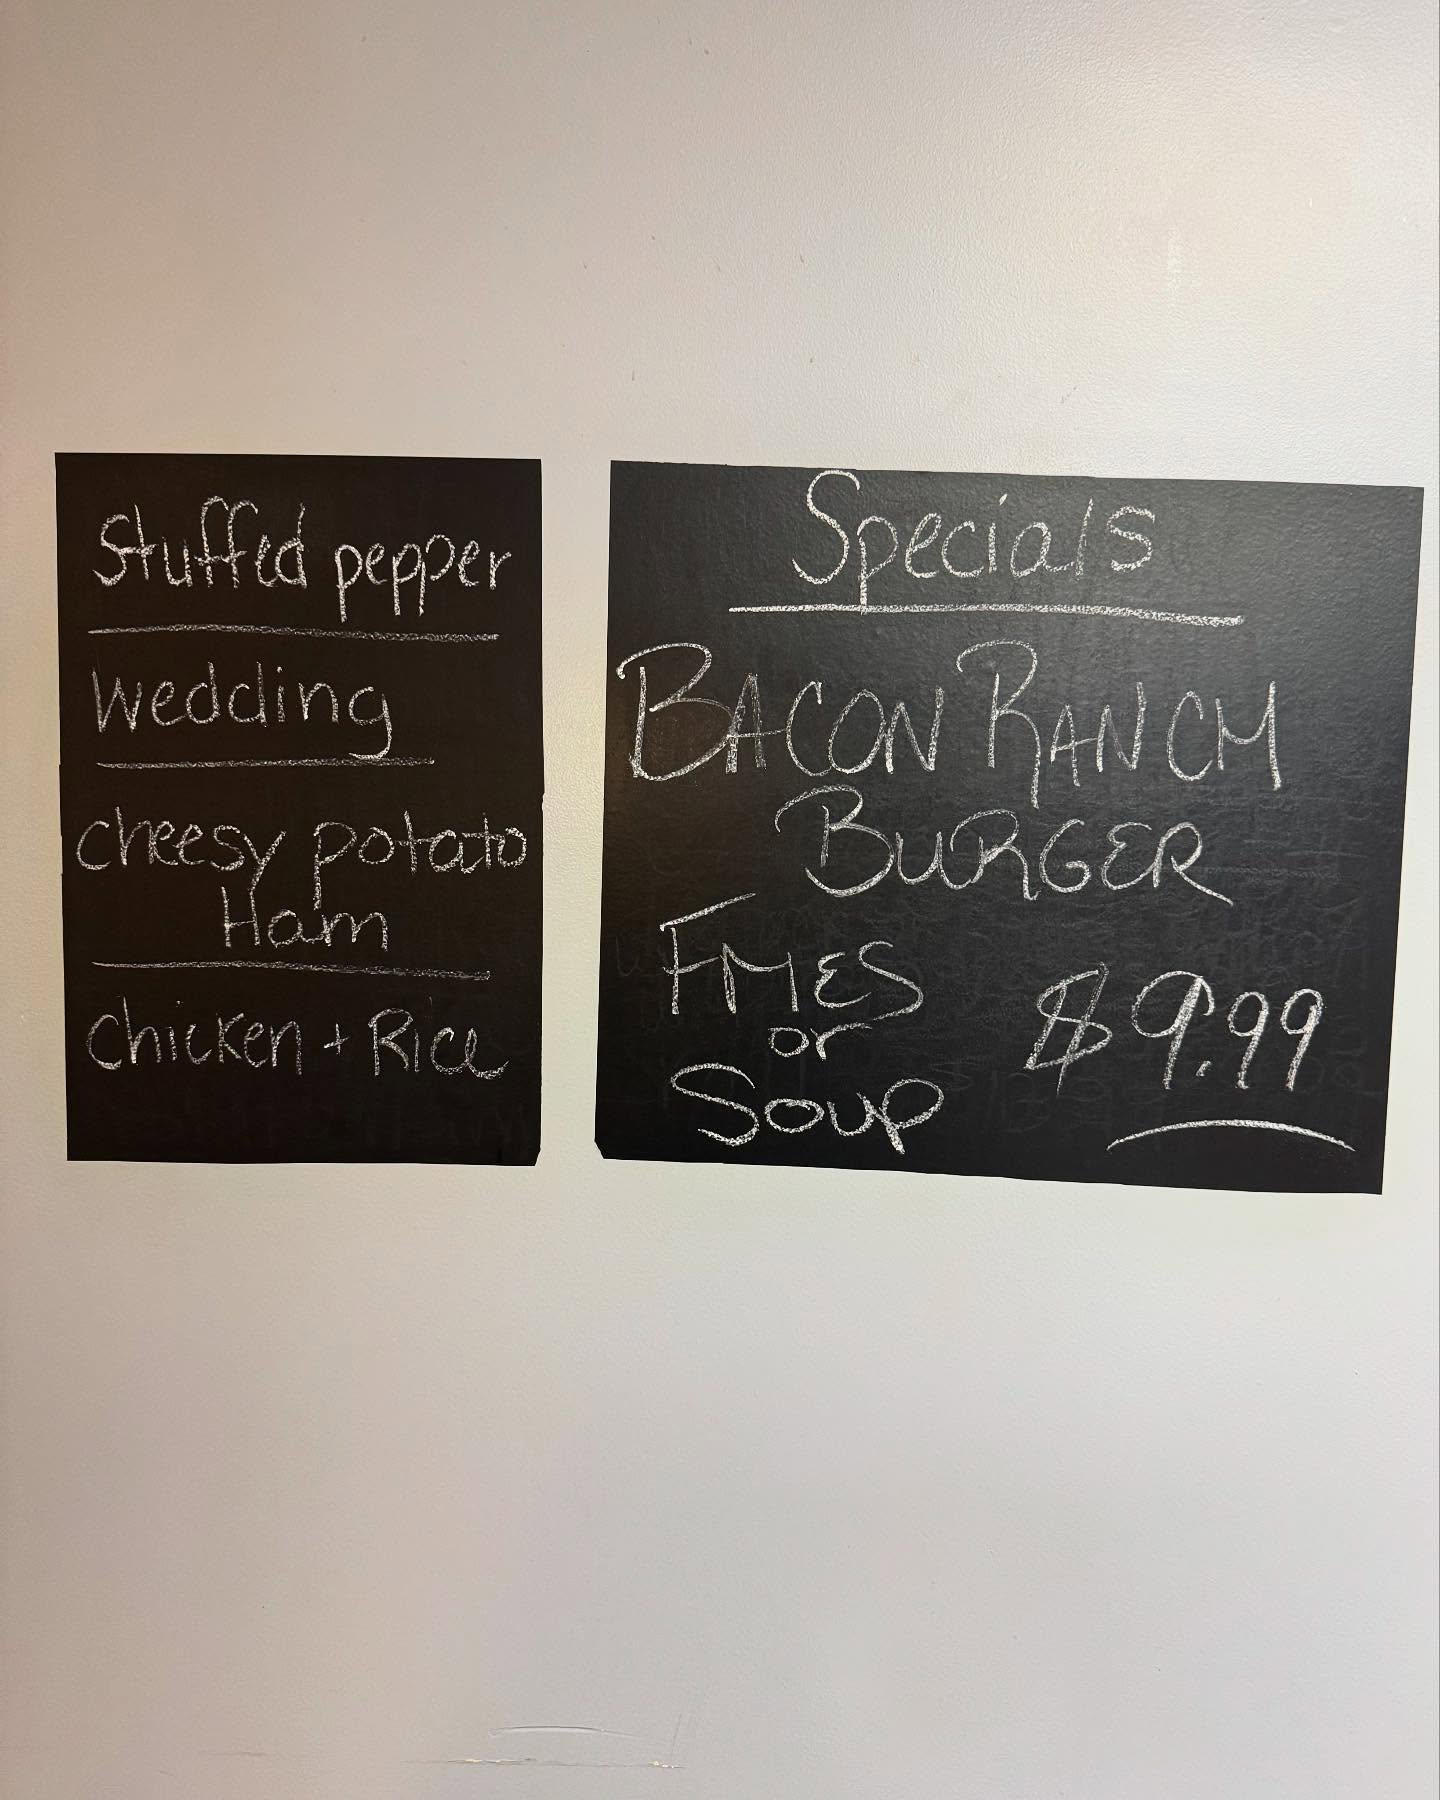 Stuffed pepper
Wedding
cheesy potato
Ham
Chicken + Rice
Specials
BACON RANCH
BURGER
FRIES
or
SOUP
$9.99